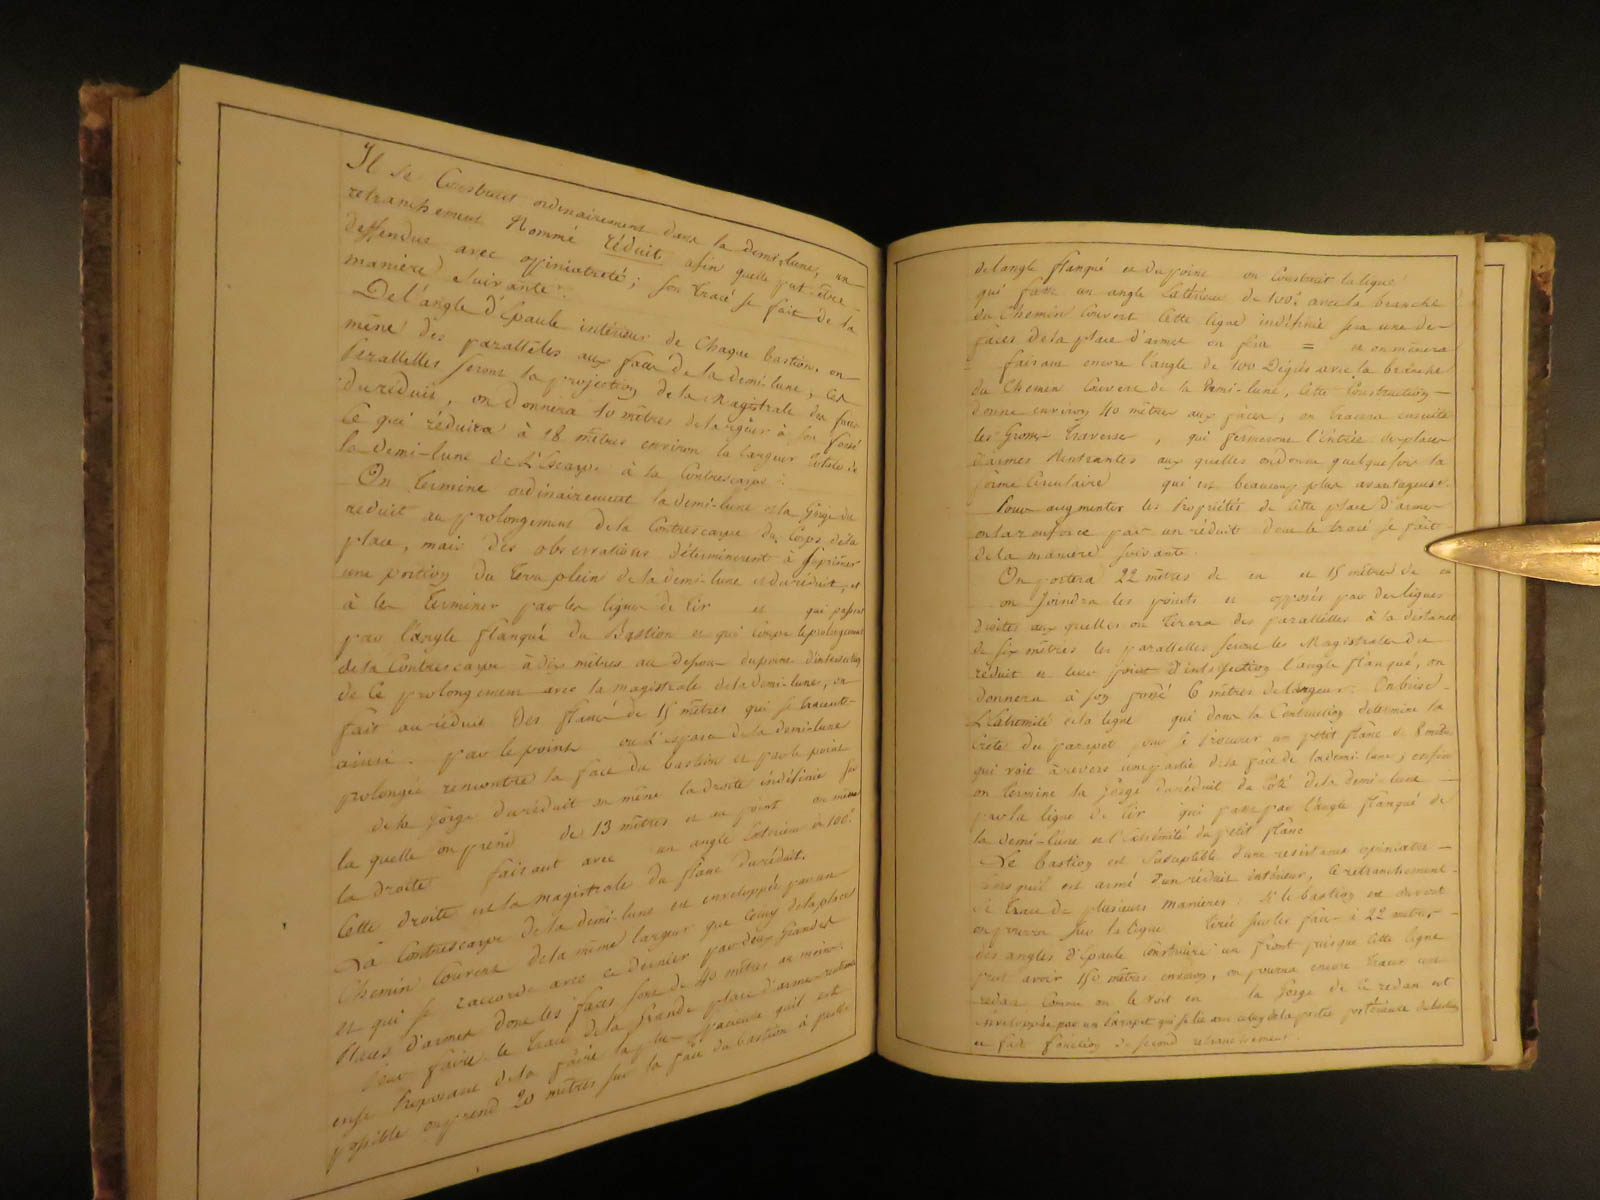 Il se Construit ordinairement dans la demi-lune, un
retranchement Nommé réduit afin quelle put-être
deffendue avec opiniatreté; son tracé se fait de la
manière Suivante:
De l'angle d'Epaule intérieur de Chaque bastion on
mène des parallèles aux faces de la demi-lune, Ces
Parallelles seront la projection de la Magistrale des faces
du réduit, on donnera 10 mètres de largeur à son fossé
Ce qui réduira à 18 mètres environ la largeur totale de
la demi-lune de L'Escarpe à la Contrescarpe:
On termine ordinairement la demi-lune et la Gorge du
réduit au prolongement de la Contrescarpe du Corps de la
place, mais des observations déterminerent à Suprimer
une portion du terre plein de la demi-lune et du réduit, et
à les terminer par les lignes de tir et qui passent
par l'angle flanqué du Bastion et qui Coupe le prolongement
de la Contrescarpe à dix mètres au dessous du point d'intersection
de Ce prolongement avec la magistrale de la demi-lune, on
fait au réduit des flancs de 15 mètres qui se tracent
ainsi. par le point ou L'Escarpe de la demi-lune
prolongée rencontre la face du bastion et par le point
de la Gorge du réduit on mène la droite indéfinie sur
la quelle on prend de 13 mètres et au point on mène
la droite faisant avec un angle Extérieur de 100.d
Cette droite est la magistrale du flanc du réduit.
La Contrescarpe de la demi-lune est enveloppée par un
Chemin Couvert de la même largeur que Celuy de la place
et qui se raccorde avec ce dernier par deux Grandes
Places d'armes dont les faces sont de 40 mètres au moins.
Pour faire le tracé de la Grande place d'armes rentrante
en se Proposant de la faire la plus spacieuse quil est
possible on prend 20 mètres sur la face du bastion à partir
de l'angle flanqué et du point on Construit la ligne
qui fasse un angle Extérieur de 100.d avec la branche
du Chemin Couvert Cette ligne indéfinie sera une des
faces de la place d'armes on fera = et on mènera
faisant encore l'angle de 100 Degrés avec la branche
du Chemin Couvert de la Demi-lune, Cette Construction
donne environ 40 mètres aux faces, on tracera ensuite
les Grosses Traverses, qui fermeront l'Entrée des places
d'armes Rentrantes aux quelles on donne quelquefois la
forme Circulaire qui est beaucoup plus avantageuse.
Pour augmenter les Propriétés de Cette place d'armes
on la renforce par un réduit dont le tracé se fait
de la manière suivante.
On portera 22 mètres de en et 15 mètres de en
on Joindra les points et opposés par des lignes
droites aux quelles on tirera des parallèles à la distance
de six mètres les parallelles seront les Magistrales du
réduit et leur point d'intersection l'angle flanqué, on
donnera à son fossé 6 mètres de largeur. On brise
L'Extrémité de la ligne qui dans la Construction détermine la
Crête du parapet pour se procurer un petit flanc de 8 mètres
qui voit à revers une partie de la face de la demi-lune; enfin
on termine la Gorge du réduit du Côté de la demi-lune
par la ligne de tir qui passe par l'angle flanqué de
la demi-lune et l'extrémité du petit flanc
Le bastion est Susceptible d'une resistance opiniatre
lorsqu'il est armé d'un réduit intérieur, le retranchement
se trace de plusieurs manières: Si le bastion est ouvert
on pourra sur la ligne tirée sur les faces à 22 mètres
des angles d'Epaule Construire un front puisque Cette ligne
peut avoir 150 mètres environ, on pourra encore tracer un
redan comme on le voit en la Gorge de Ce redan est
enveloppée par un Parapet qui se lie avec celuy de la partie postérieure du bastion
et fait fonction de second retranchement.